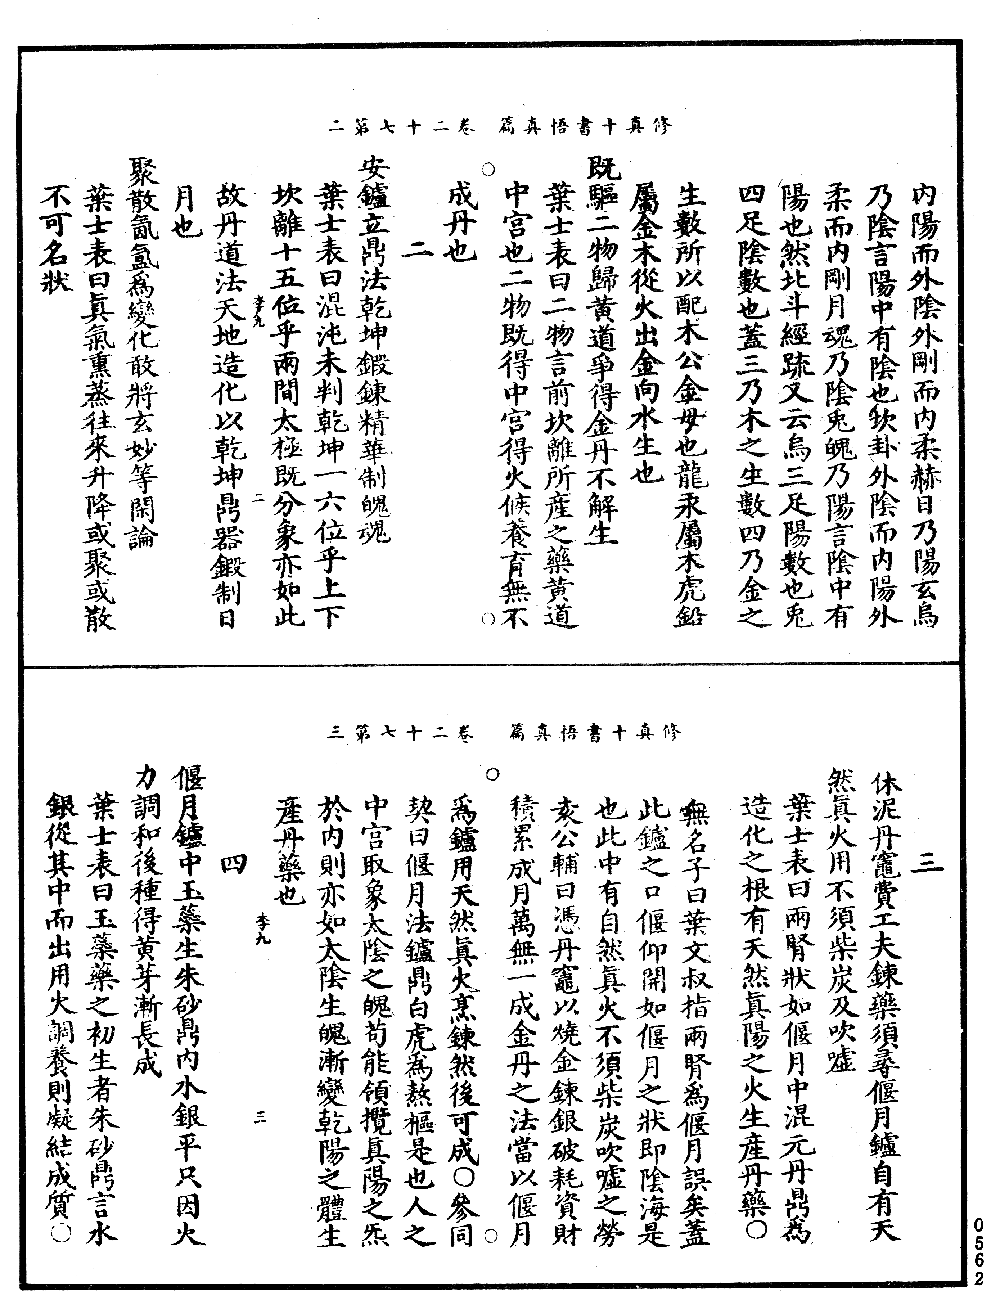 修真十書悟真篇　卷二十七第二
内陽而外陰外剛而内柔赫日乃陽玄烏
乃陰言陽中有陰也坎卦外陰而内陽外
柔而内剛月魂乃陰兎魄乃陽言陰中有
陽也然北斗經䟽又云烏三足陽數也兎
四足陰數也蓋三乃木之生數四乃金之
生數所以配木公金母也龍汞屬木虎鉛
屬金木從火出金向水生也
既驅二物歸黄道爭得金丹不解生
葉士表曰二物言前坎離所産之藥黄道
中宫也二物既得中宫得火候養育無不
成丹也
二
安鑪立鼎法乾坤鍛鍊精華制魄魂
葉士表曰混沌未判乾坤一六位乎上下
坎離十五位乎兩間太極既分象亦如此
李九　二
故丹道法天地造化以乾坤鼎器鍛制日
月也
聚散氤氳爲變化敢將玄妙等閑論
葉士表曰眞氣熏蒸往來升降或聚或散
不可名狀
修真十書悟真篇　卷二十七第三
三
休泥丹竈費工夫鍊藥須尋偃月鑪自有天
然眞火用不須柴炭及吹噓
葉士表曰兩腎狀如偃月中混元丹鼎爲
造化之根有天然眞陽之火生産丹藥○
無名子曰葉文叔指兩腎爲偃月誤矣蓋
此鑪之口偃仰開如偃月之狀即陰海是
也此中有自然眞火不須柴炭吹噓之勞
亥公輔曰憑丹竈以燒金鍊銀破耗資財
積累成月萬無一成金丹之法當以偃月
爲鑪用天然眞火烹鍊然後可成○參同
契曰偃月法鑪鼎白虎爲熬樞是也人之
中宫取象太陰之魄苟能領攬真陽之炁
於内則亦如太陰生魄漸變乾陽之體生
産丹藥也
李九　三
四
偃月鑪中玉藥生朱砂鼎内水銀平只因火
力調和後種得黄芽漸長成
葉士表曰玉藥藥之初生者朱砂鼎言水
銀從其中而出用火調養則凝結成質○
0562